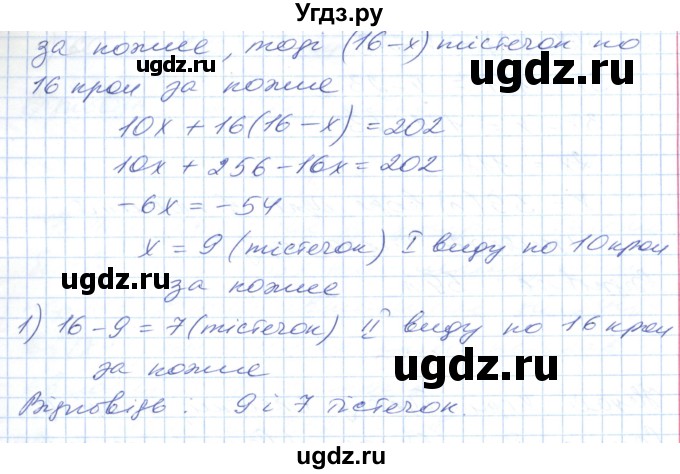 Угдз.ру
за кожне, тоді (16-х) тістечок по
16 крон за кожне
10х + 16(16-х) = 202
10х + 256 - 16х = 202
-6х = -54
х = 9 (тістечок) I виду по 10 крон
за кожне
1) 16 - 9 = 7 (тістечок) II виду по 16 крон
за кожне
Відповідь: 9 і 7 тістечок.
ugdz.ru
ugdz.ru
ugdz.ru
ugdz.ru
ugdz.ru
Угдз.ру